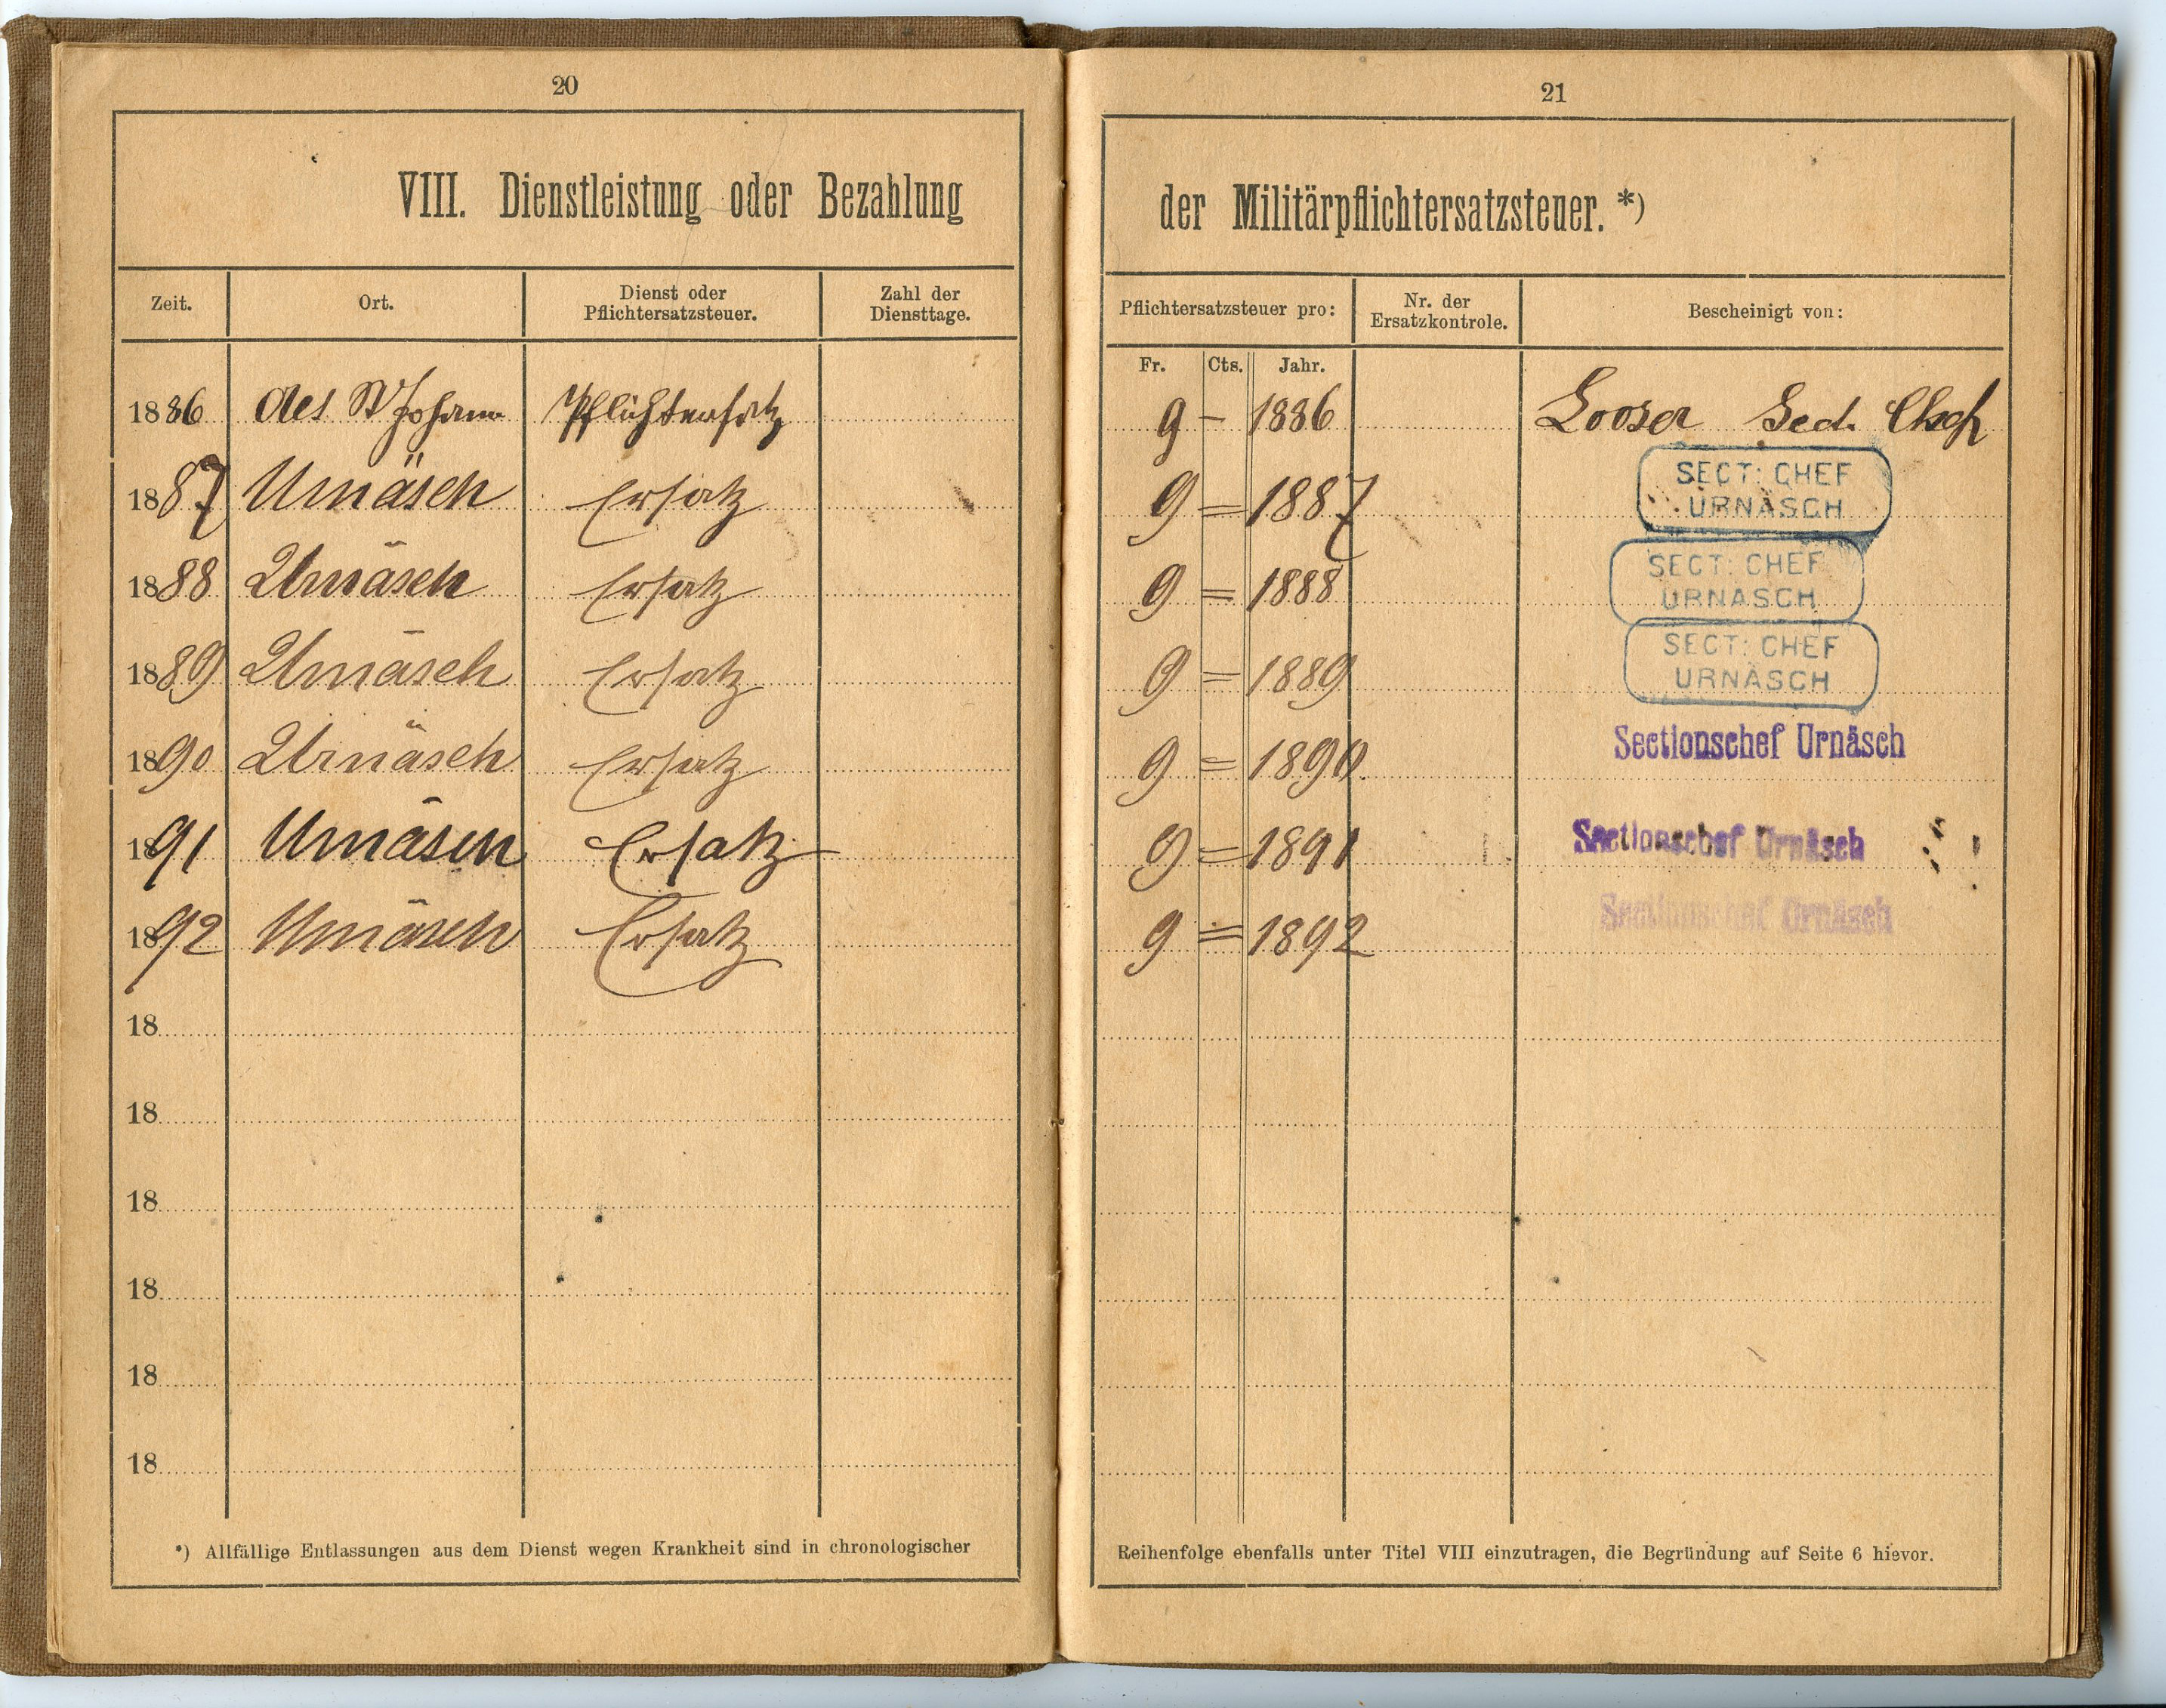 20
VIII. Dienstleistung oder Bezahlung
Zeit. Ort. Dienst oder Pflichtersatzsteuer. Zahl der Diensttage.
1886 St Johann Pflichtersatz
1887 Urnäsch Ersatz
1888 Urnäsch Ersatz
1889 Urnäsch Ersatz
1890 Urnäsch Ersatz
1891 Urnäsch Ersatz
1892 Urnäsch Ersatz
18
18
18
18
18
18
*) Allfällige Entlassungen aus dem Dienst wegen Krankheit sind in chronologischer
21
der Militärpflichtersatzsteuer. *)
Pflichtersatzsteuer pro: Nr. der Ersatzkontrole. Bescheinigt von:
Fr. Cts. Jahr.
9 – 1886 Looser Sect. Chef
9 = 1887 SECT: CHEF URNÄSCH
9 = 1888 SECT: CHEF URNÄSCH
9 = 1889 SECT: CHEF URNÄSCH
9 = 1890. Sectionschef Urnäsch
9 = 1891 Sectionschef Urnäsch
9 = 1892 Sectionschef Urnäsch
Reihenfolge ebenfalls unter Titel VIII einzutragen, die Begründung auf Seite 6 hievor.